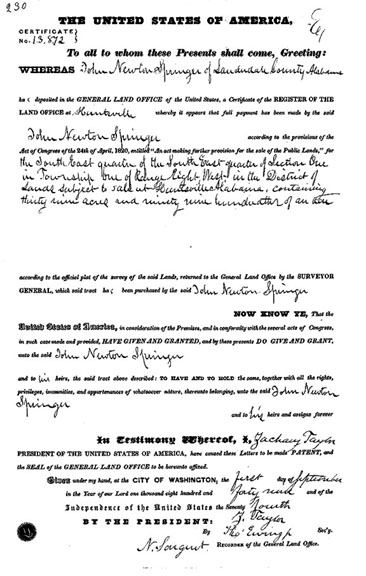 230
THE UNITED STATES OF AMERICA,
CERTIFICATE
No. 13,872
To all to whom these Presents shall come, Greeting:
WHEREAS John Newton Springer of Lauderdale County Alabama
has deposited in the GENERAL LAND OFFICE of the United States, a Certificate of the REGISTER OF THE
LAND OFFICE at Huntsville whereby it appears that full payment has been made by the said
John Newton Springer according to the provisions of the
Act of Congress of the 24th of April, 1820, entitled "An act making further provision for the sale of the Public Lands," for
the South East quarter of the South East quarter of Section One
in Township One of Range Eight, West, in the District of
Lands subject to sale at Huntsville Alabama, containing
thirty nine acres and ninety nine hundredths of an acre
according to the official plat of the survey of the said Lands, returned to the General Land Office by the SURVEYOR
GENERAL, which said tract has been purchased by the said John Newton Springer
NOW KNOW YE, That the
United States of America, in consideration of the Premises, and in conformity with the several acts of Congress,
in such case made and provided, HAVE GIVEN AND GRANTED, and by these presents DO GIVE AND GRANT,
unto the said John Newton Springer
and to his heirs, the said tract above described: TO HAVE AND TO HOLD the same, together with all the rights,
privileges, immunities, and appurtenances of whatsoever nature, thereunto belonging, unto the said John Newton
Springer
and to his heirs and assigns forever
In Testimony Whereof, I, Zachary Taylor
PRESIDENT OF THE UNITED STATES OF AMERICA, have caused these Letters to be made PATENT, and
the SEAL of the GENERAL LAND OFFICE to be hereunto affixed.
Given under my hand, at the CITY OF WASHINGTON, the first day of September
in the Year of our Lord one thousand eight hundred and forty nine and of the
Independence of the United States the Seventy fourth
BY THE PRESIDENT: Z. Taylor
By Tho. Ewing Jr Sec'y.
N. Sargent RECORDER of the General Land Office.